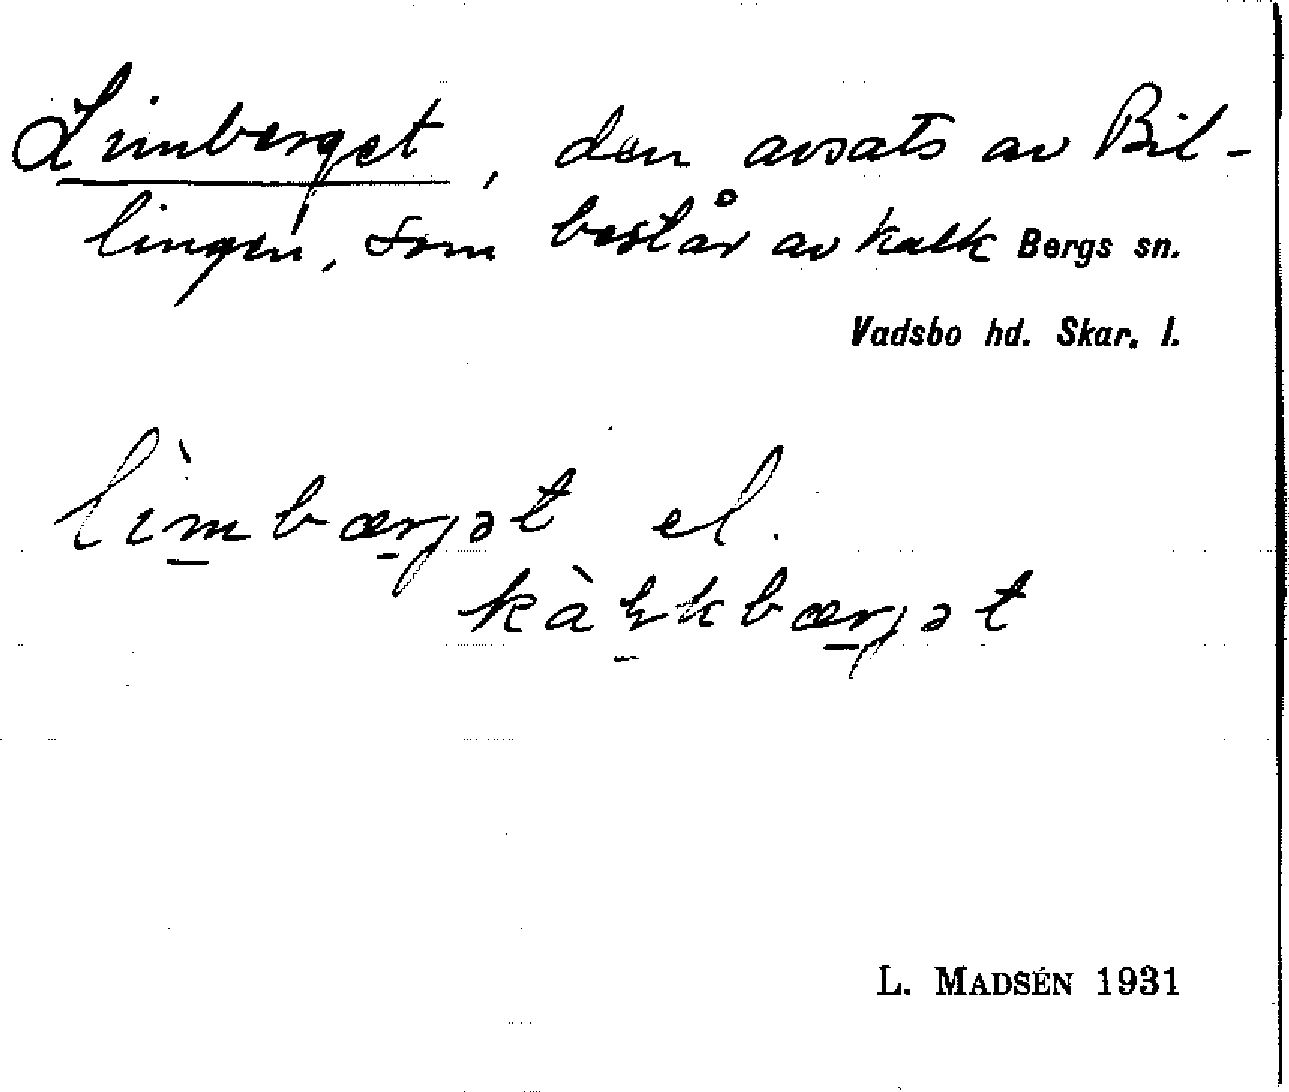 Limberget, den avsats av Bil-
lingen, som består av kalk Bergs sn.
Vadsbo hd. Skar. l.
lìmbærjət el.
kàłkbærjət
L. MADSÉN 1931